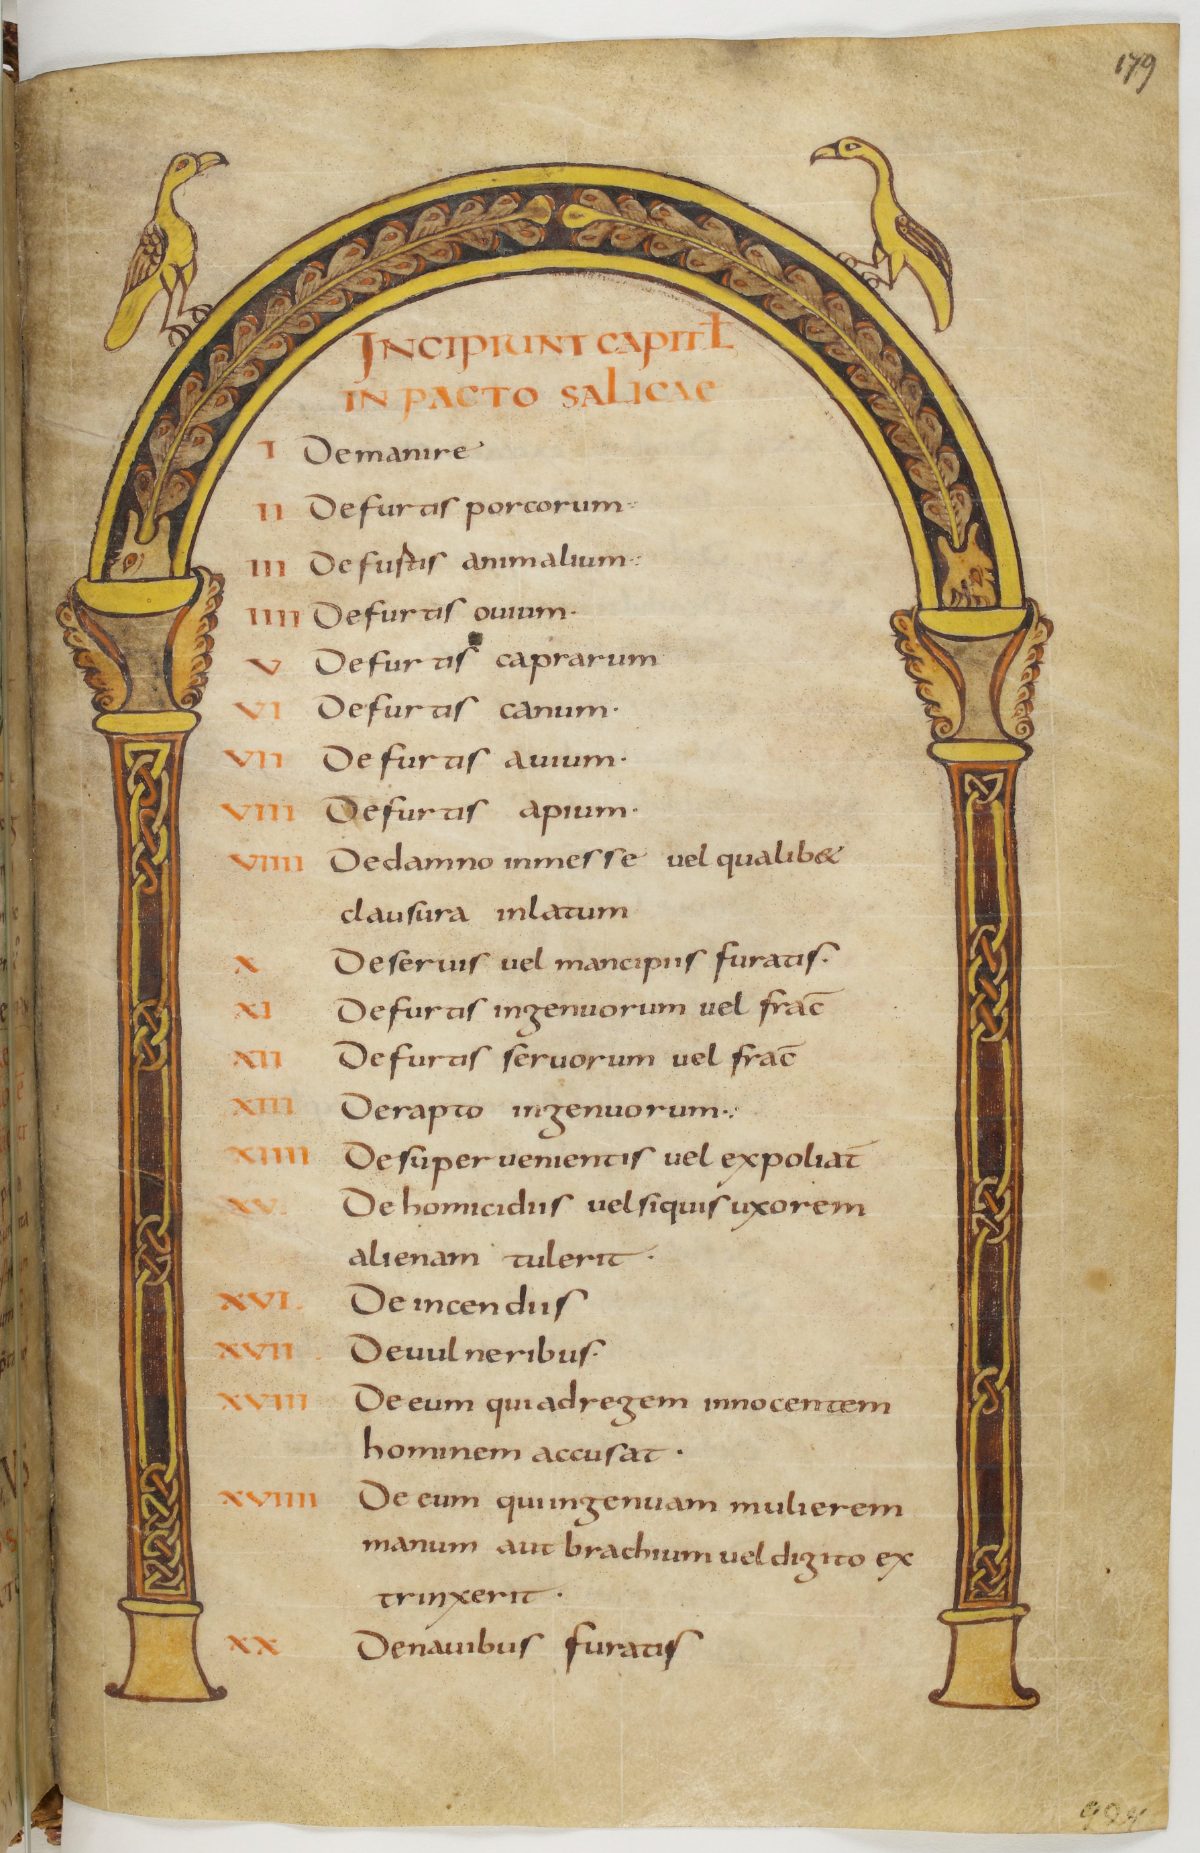 179
INCIPIUNT CAPITƚ
IN PACTO SALICAE
I De manire
II De furtis porcorum
III De fustis animalium
IIII De furtis ouium.
V De furtis caprarum
VI De furtis canum.
VII De furtis auium.
VIII De furtis apium.
VIIII De damno inmesse uel qualib&
clausura inlatum
X De seruis uel mancipiis furatis.
XI De furtis ingenuorum uel frac̄
XII De furtis seruorum uel frac̄
XIII De rapto ingenuorum.
XIIII De superuenientis uel expoliat̄
XV. De homicidiis uel siquis uxorem
alienam tulerit.
XVI. De incendiis
XVII. De uulneribus.
XVIII De eum qui ad regem innocentem
hominem accusat.
XVIIII De eum qui ingenuam mulierem
manum aut brachium uel digito ex
trinxerit.
XX De nauibus furatis